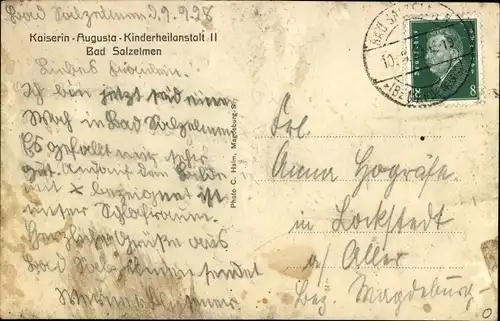 Bad Salzelmen 9.9.28
Kaiserin-Augusta-Kinderheilanstalt II
Bad Salzelmen
Liebes
Ich bin jetzt seid einer
Woch in Bad Salzelmen
Es gefallt mir sehr
gut. Auf dem Bilde
mit x bezeignet ist
unser Schlafraum.
Herzliche Grüße aus
Bad Salzelmen sendet
Werner
Photo C. Halm, Magdeburg-S.
BAD SALZ
10.
8
Frl.
Anna Hogräfe
in Lockstedt
a/ Aller
Bez. Magdeburg